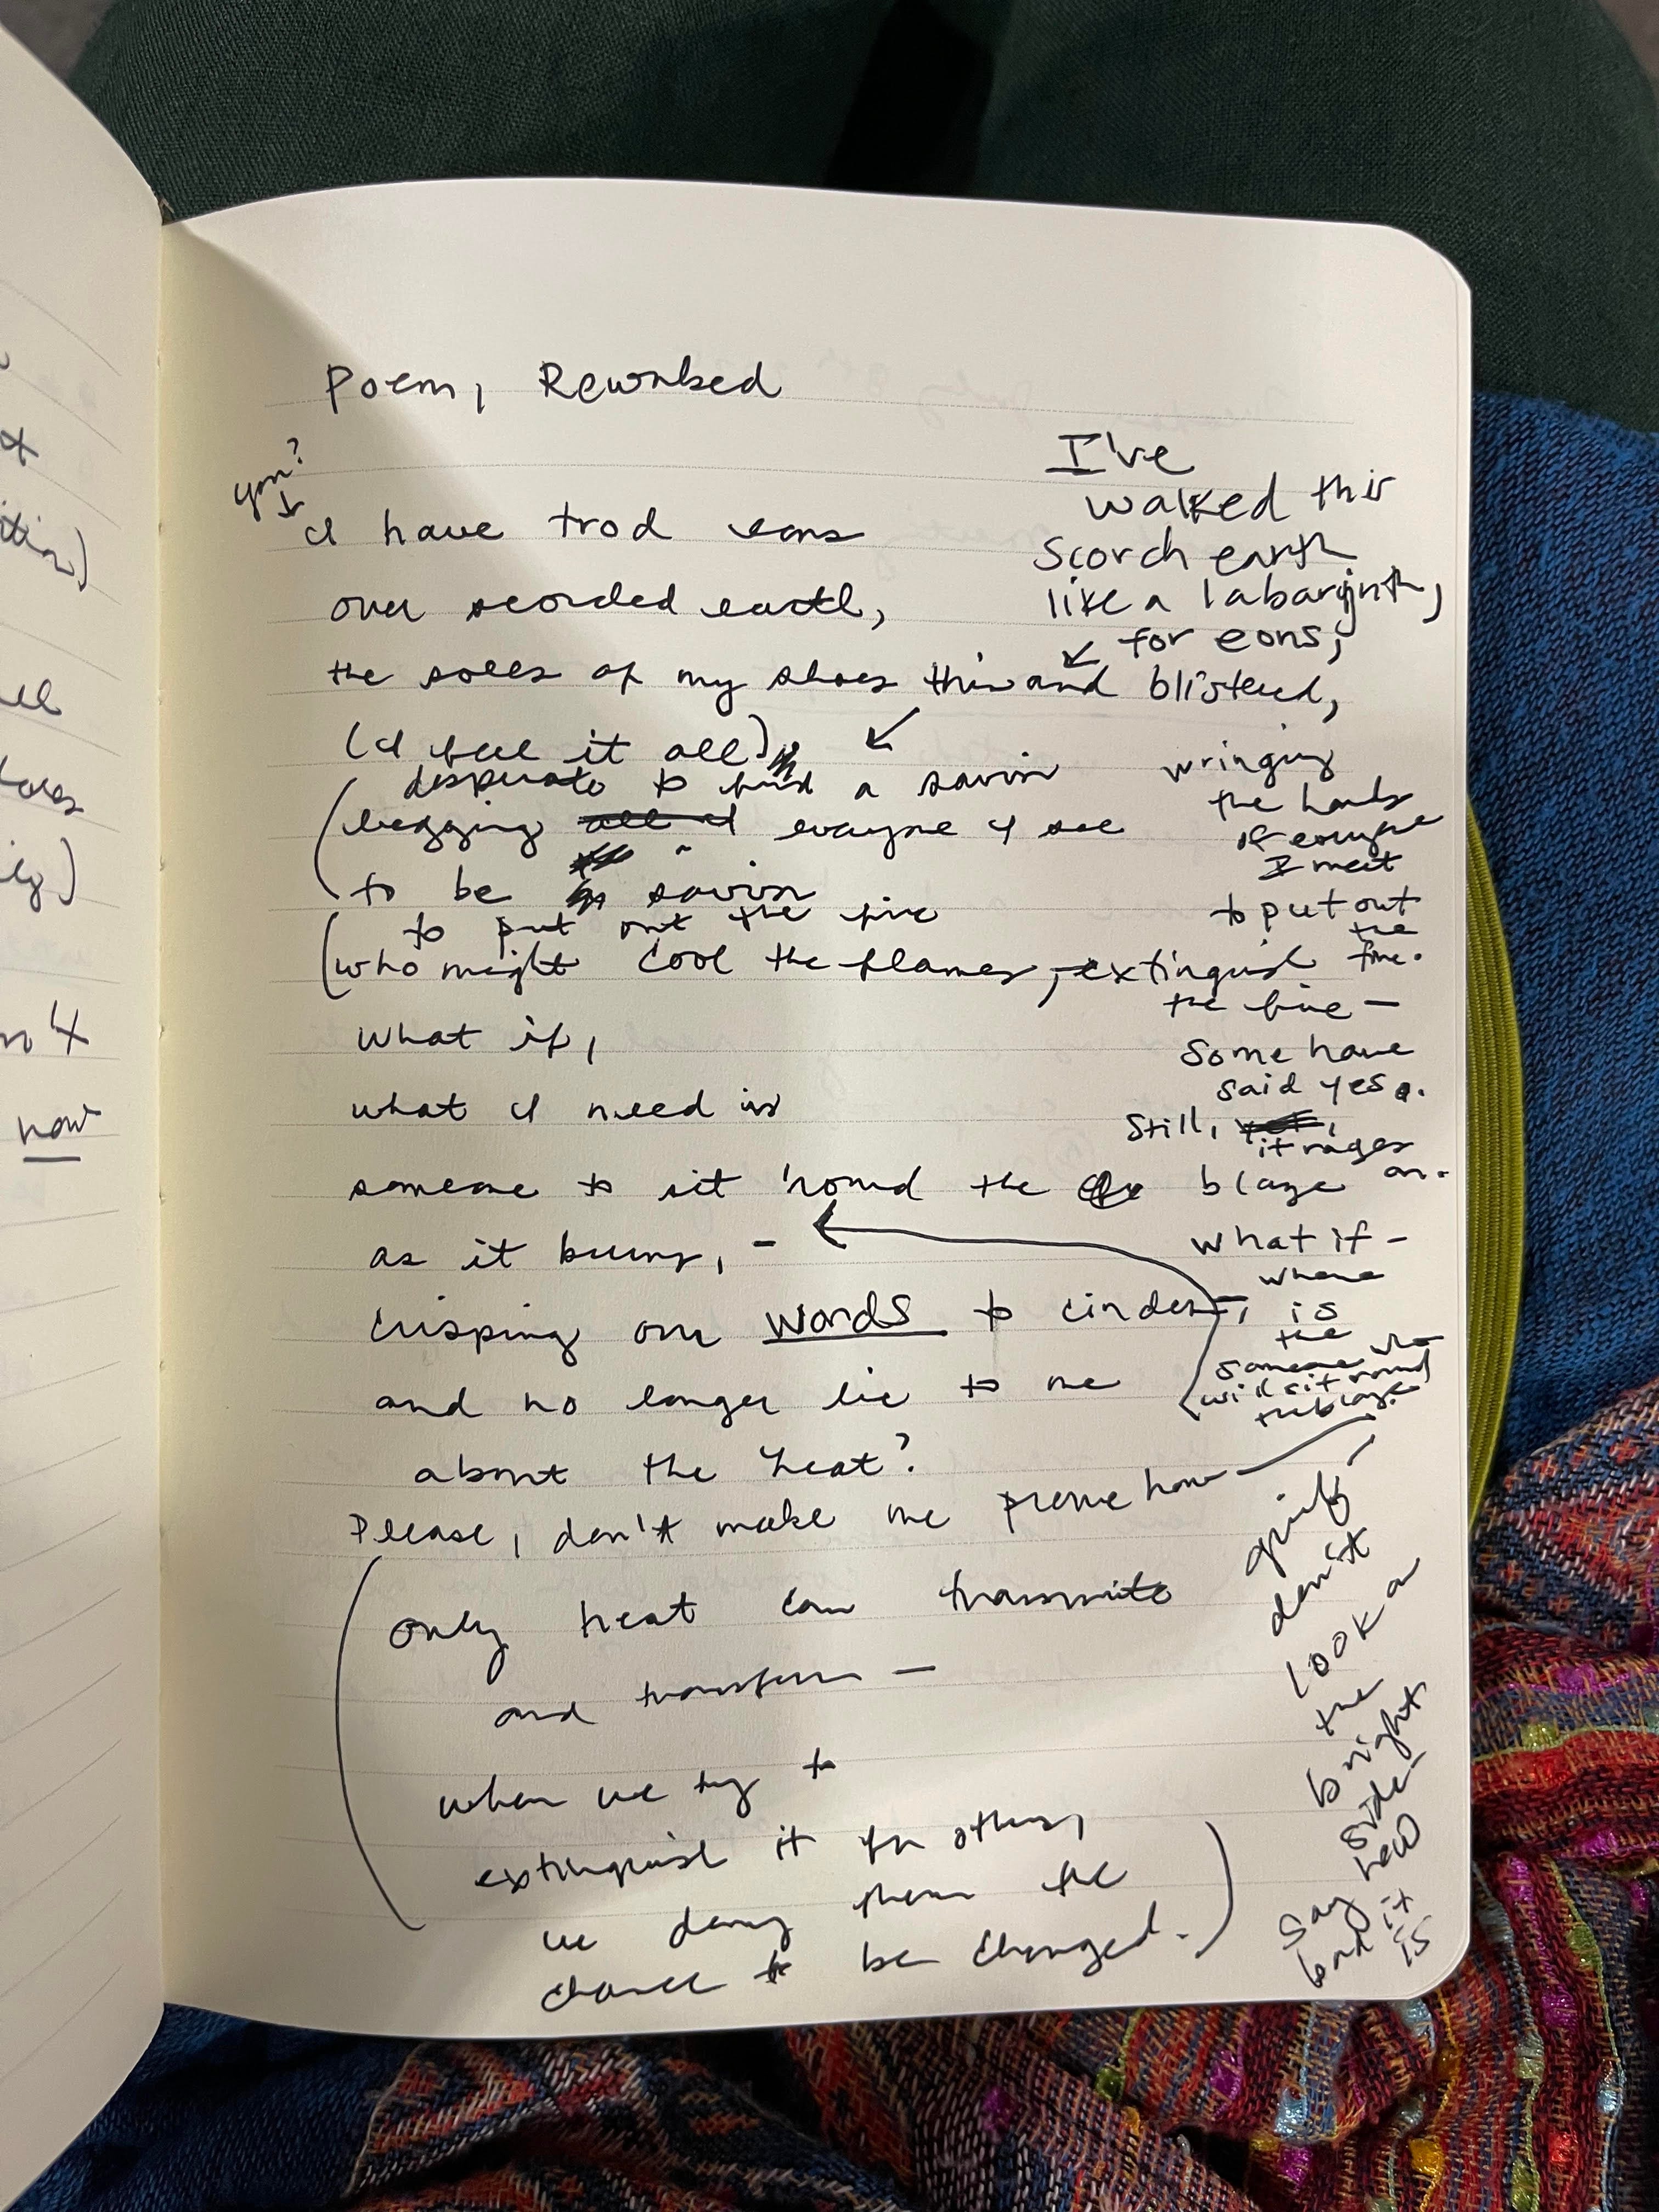 Poem, Reworked
you?
I have trod eons
over scorched earth,
the soles of my shoes thin and blistered,
(I feel it all)
desperate to find a savior
begging all I everyone I see
to be savior
to put out the fire
(who might cool the flames, extinguish
the fire —
What if,
what I need is
someone to sit 'round the blaze
as it burns, -
crisping our words to cinders,
and no longer lie to me
about the heat?
Please, don't make me prove how
only heat can transmute
and transform —
when we try to
extinguish it for others,
we deny them the
chance to be changed.)
I've
walked this
Scorch earth
like a labarynth,
for eons,
wringing
the hands
of everyone
I meet
to put out
the
fire.
Some have
said yes.
Still, yet,
it rages
on.
What if -
where
is
the
someone who
will sit round
the blaze
grief
don't
look a
the
bright
side
Say how
bad it
is
now